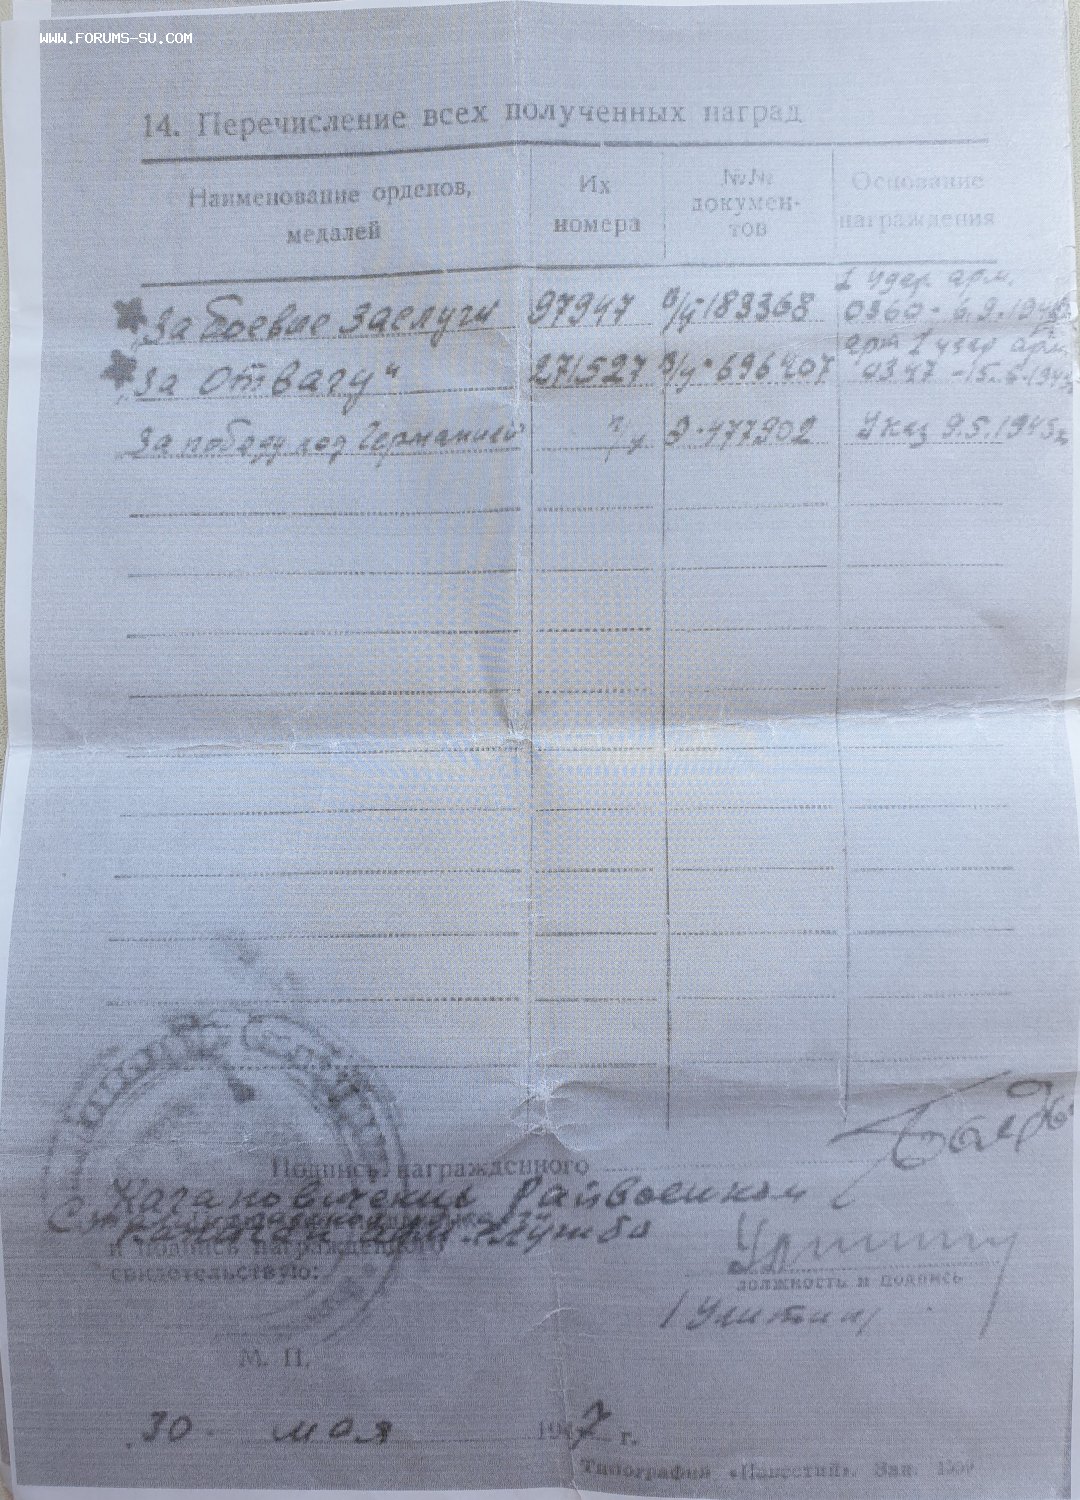 WWW.FORUMS-SU.COM
14. Перечисление всех полученных наград
Наименование орденов, медалей
Их номера
№№ докумен-тов
Основание награждения
1 удар. арм.
За боевые заслуги 97947 в/у 183368 0360 - 6.9.194
арт 1 удар арм.
За отвагу" 271527 в/у 696407 0347 - 15.
За победу над Германией Э. 477902 Указ 9.5.1945
Подпись награжденного
Кагановичский Райвоенком
служба
и подпись награжденного
свидетельствую:
должность и подпись
/Улитин/
М. П.
30. мая 1947 г.
Типография «Известий». Зак.